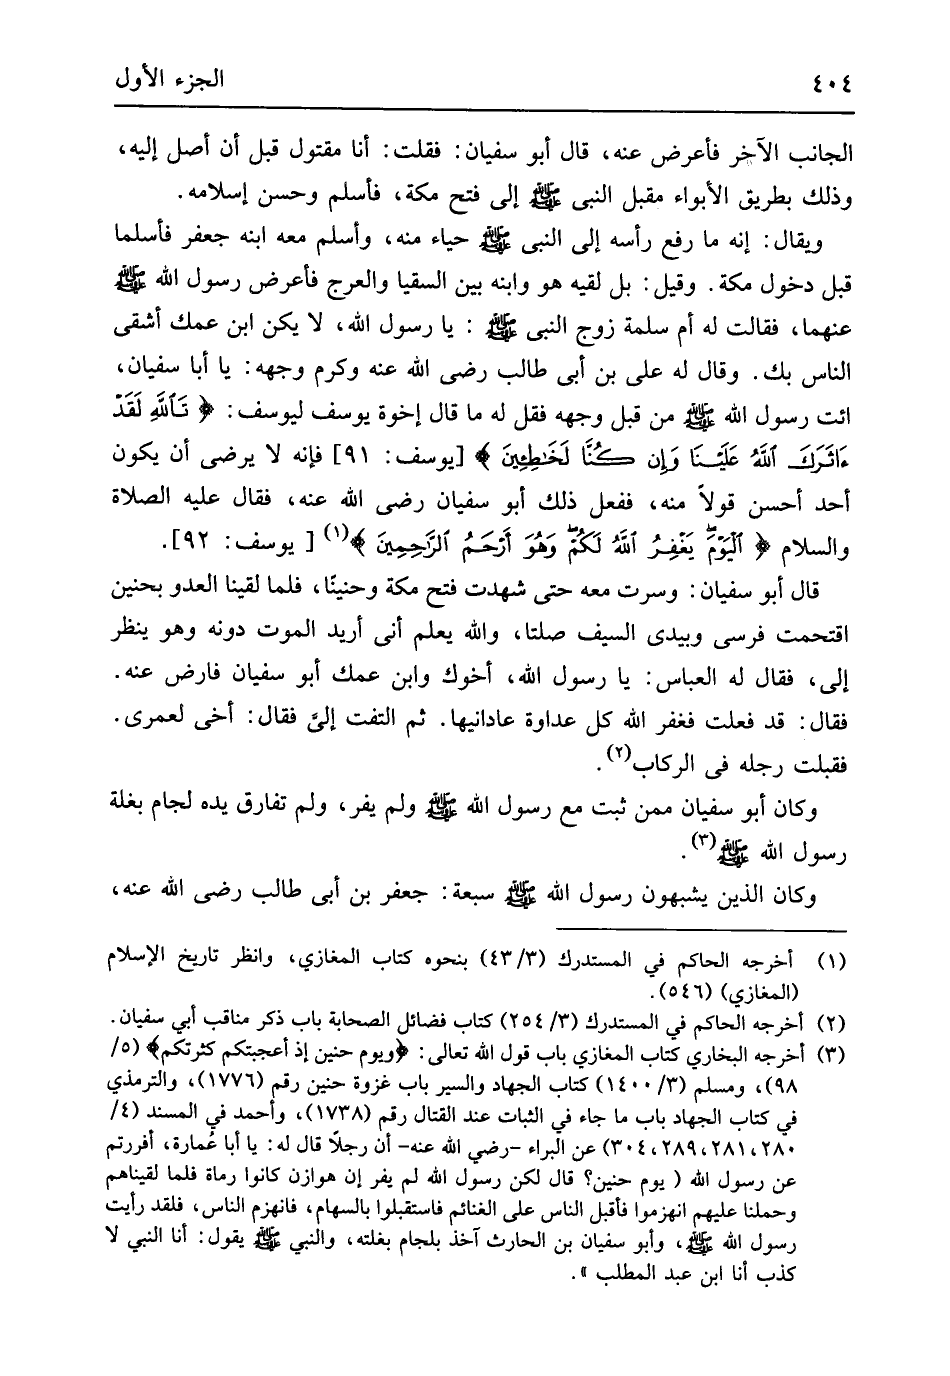 ٤٠٤ الجزء الأول
الجانب الآخر فأعرض عنه، قال أبو سفيان: فقلت: أنا مقتول قبل أن أصل إليه،
وذلك بطريق الأبواء مقبل النبى ﷺ إلى فتح مكة، فأسلم وحسن إسلامه.
ويقال: إنه ما رفع رأسه إلى النبى ﷺ حياء منه، وأسلم معه ابنه جعفر فأسلما
قبل دخول مكة. وقيل: بل لقيه هو وابنه بين السقيا والعرج فأعرض رسول الله ﷺ
عنهما، فقالت له أم سلمة زوج النبى ﷺ : يا رسول الله، لا يكن ابن عمك أشقى
الناس بك. وقال له على بن أبى طالب رضى الله عنه وكرم وجهه: يا أبا سفيان،
ائت رسول الله ﷺ من قبل وجهه فقل له ما قال إخوة يوسف ليوسف: ﴿ تَٱللَّهِ لَقَدْ
ءَاثَرَكَ ٱللَّهُ عَلَيْنَا وَإِن كُنَّا لَخَٰطِئِينَ ﴾ [يوسف: ٩١] فإنه لا يرضى أن يكون
أحد أحسن قولاً منه، ففعل ذلك أبو سفيان رضى الله عنه، فقال عليه الصلاة
والسلام ﴿ ٱلْيَوْمَۖ يَغْفِرُ ٱللَّهُ لَكُمْۖ وَهُوَ أَرْحَمُ ٱلرَّٰحِمِينَ ﴾(١) [ يوسف: ٩٢].
قال أبو سفيان: وسرت معه حتى شهدت فتح مكة وحنينًا، فلما لقينا العدو بحنين
اقتحمت فرسى وبيدى السيف صلتا، والله يعلم أنى أريد الموت دونه وهو ينظر
إلى، فقال له العباس: يا رسول الله، أخوك وابن عمك أبو سفيان فارض عنه.
فقال: قد فعلت فغفر الله كل عداوة عادانيها. ثم التفت إلىَّ فقال: أخى لعمرى.
فقبلت رجله فى الركاب(٢).
وكان أبو سفيان ممن ثبت مع رسول الله ﷺ ولم يفر، ولم تفارق يده لجام بغلة
رسول الله ﷺ(٣).
وكان الذين يشبهون رسول الله ﷺ سبعة: جعفر بن أبى طالب رضى الله عنه،
(١) أخرجه الحاكم في المستدرك (٤٣/٣) بنحوه كتاب المغازي، وانظر تاريخ الإسلام
(المغازي) (٥٤٦).
(٢) أخرجه الحاكم في المستدرك (٢٥٤/٣) كتاب فضائل الصحابة باب ذكر مناقب أبي سفيان.
(٣) أخرجه البخاري كتاب المغازي باب قول الله تعالى: ﴿ويوم حنين إذ أعجبتكم كثرتكم﴾ (٥/
٩٨)، ومسلم (١٤٠٠/٣) كتاب الجهاد والسير باب غزوة حنين رقم (١٧٧٦)، والترمذي
في كتاب الجهاد باب ما جاء في الثبات عند القتال رقم (١٧٣٨)، وأحمد في المسند (٤/
٢٨٠، ٢٨١، ٢٨٩، ٣٠٤) عن البراء -رضي الله عنه- أن رجلاً قال له: يا أبا عُمارة، أفررتم
عن رسول الله ( يوم حنين؟ قال لكن رسول الله لم يفر إن هوازن كانوا رماة فلما لقيناهم
وحملنا عليهم انهزموا فأقبل الناس على الغنائم فاستقبلوا بالسهام، فانهزم الناس، فلقد رأيت
رسول الله ﷺ، وأبو سفيان بن الحارث آخذ بلجام بغلته، والنبي ﷺ يقول: أنا النبي لا
كذب أنا ابن عبد المطلب ».